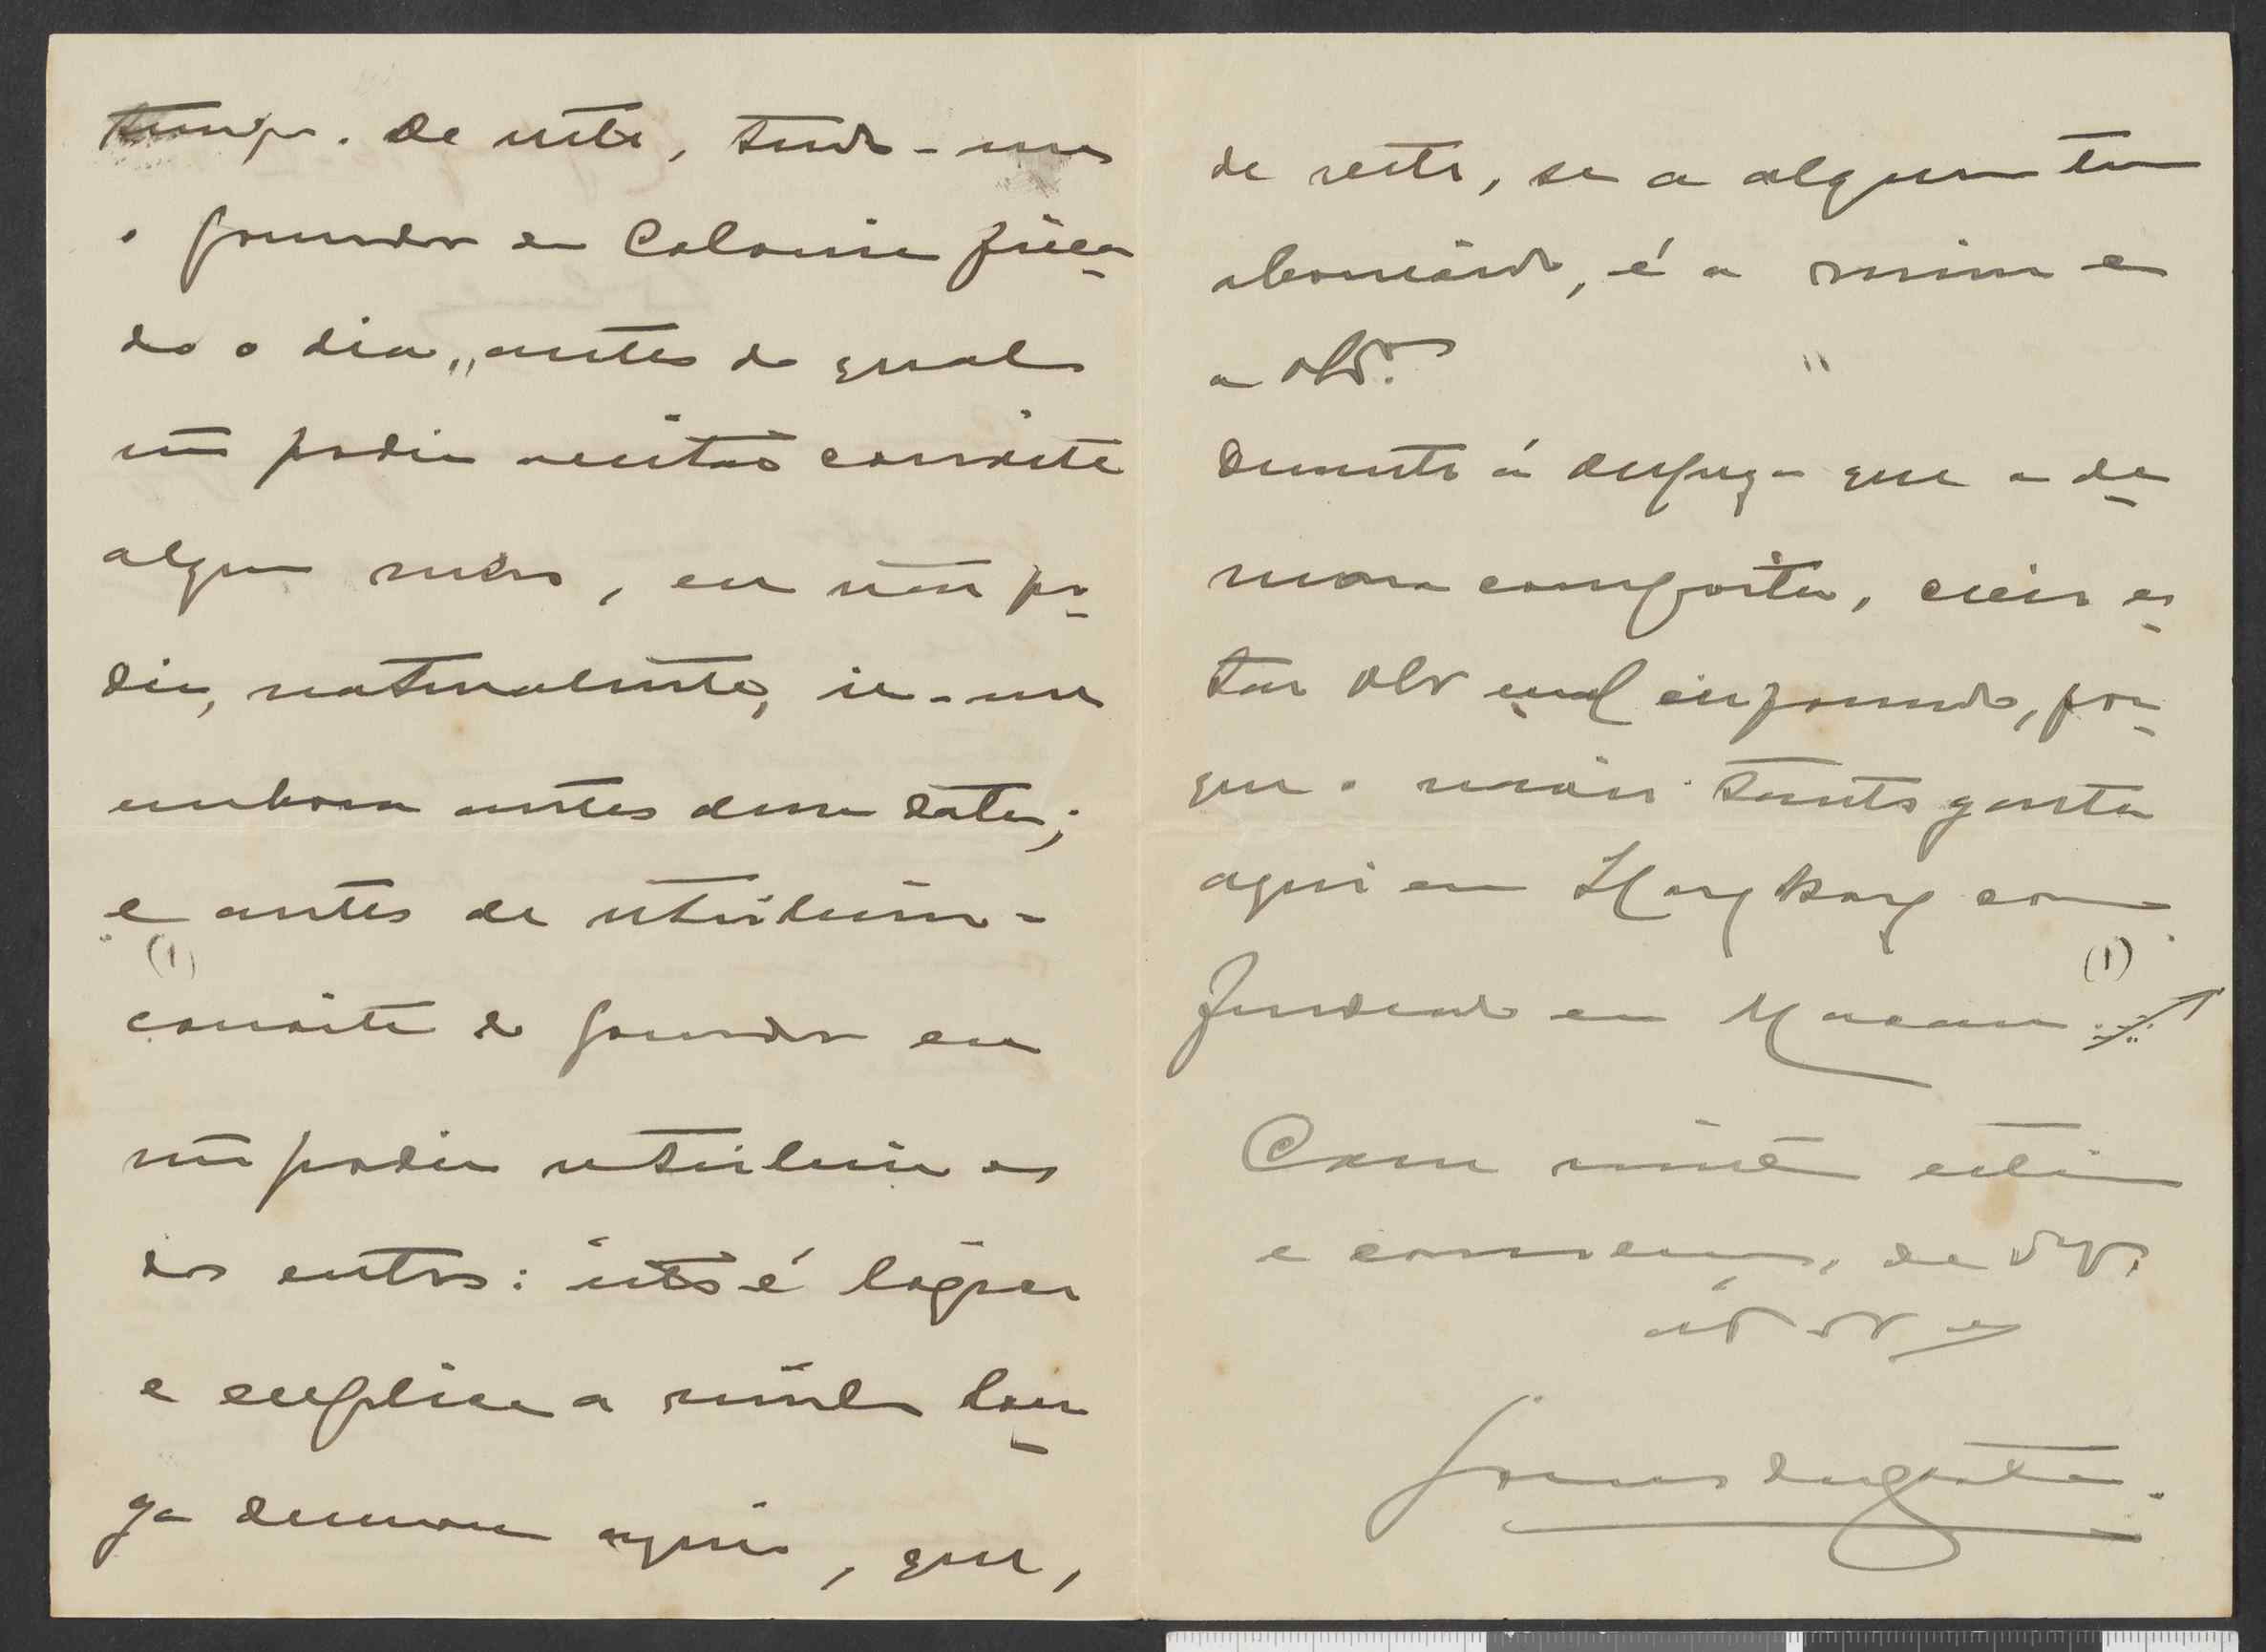 tempo. De resto, tendo-me
o governador da Colonia fixa-
do o dia, antes do qual
não podia acceitar convite
algum meu, eu não po-
dia, naturalmente, ir-me
embora antes dessa data;
e antes de retribuir o
(1)
convite do governador eu
não podia retribuir os
dos outros: isto é logico
e explica a minha lon-
ga demora aqui, que,
de resto, se a alguem tem
aborrecido, é a mim e
a
Quanto á despeza que a de-
mora comporta, creio es-
tar mal informado, por-
que o navio tanto gasta
aqui em Hong Kong como
fundeado em Macau
(1)
Com muita estima
e consideração, de
Gomes da Costa.